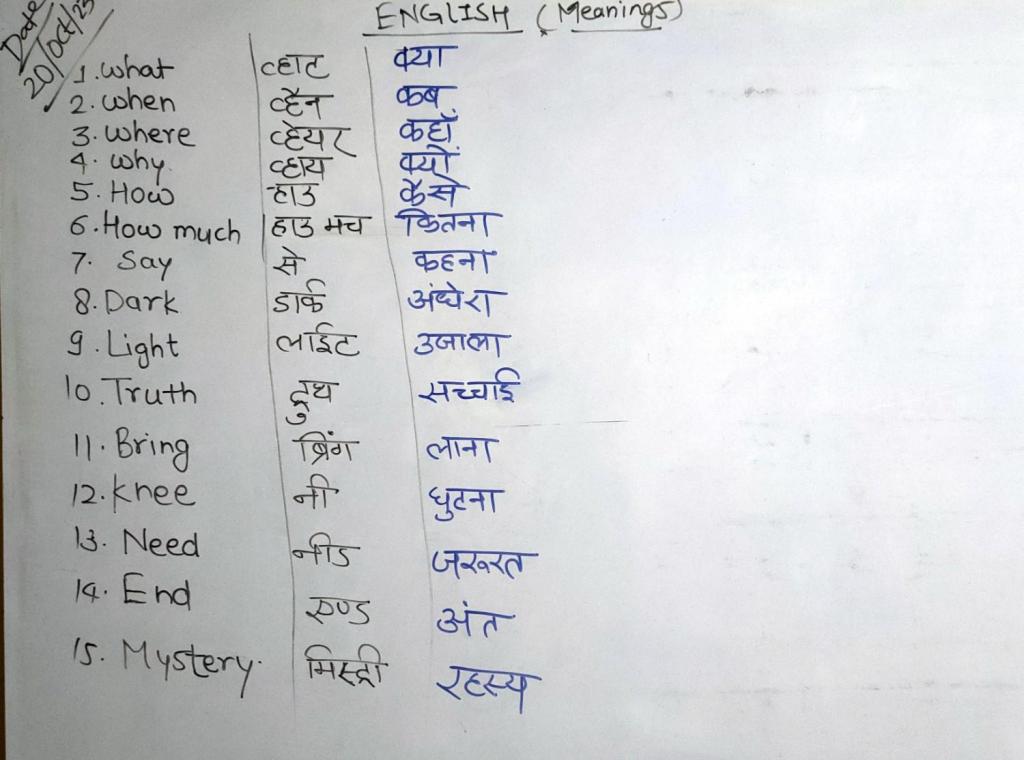 Date
20/Oct/23
ENGLISH (Meanings)
1. What व्हाट क्या
2. when व्हैन कब
3. where व्हेयर कहाँ
4. why. व्हाय क्यों
5. How हाउ कैसे
6. How much हाउ मच कितना
7. Say से कहना
8. Dark डार्क अंधेरा
9. Light लाईट उजाला
10. Truth ट्रुथ सच्चाई
11. Bring ब्रिंग लाना
12. Knee नी घुटना
13. Need नीड जरूरत
14. End एण्ड अंत
15. Mystery. मिस्ट्री रहस्य